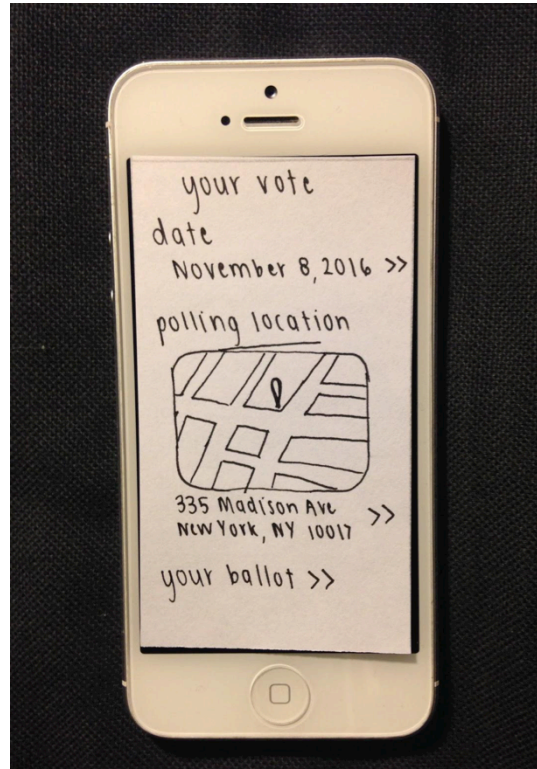 your vote
date
November 8, 2016 >>
polling location
335 Madison Ave >>
New York, NY 10017
your ballot >>